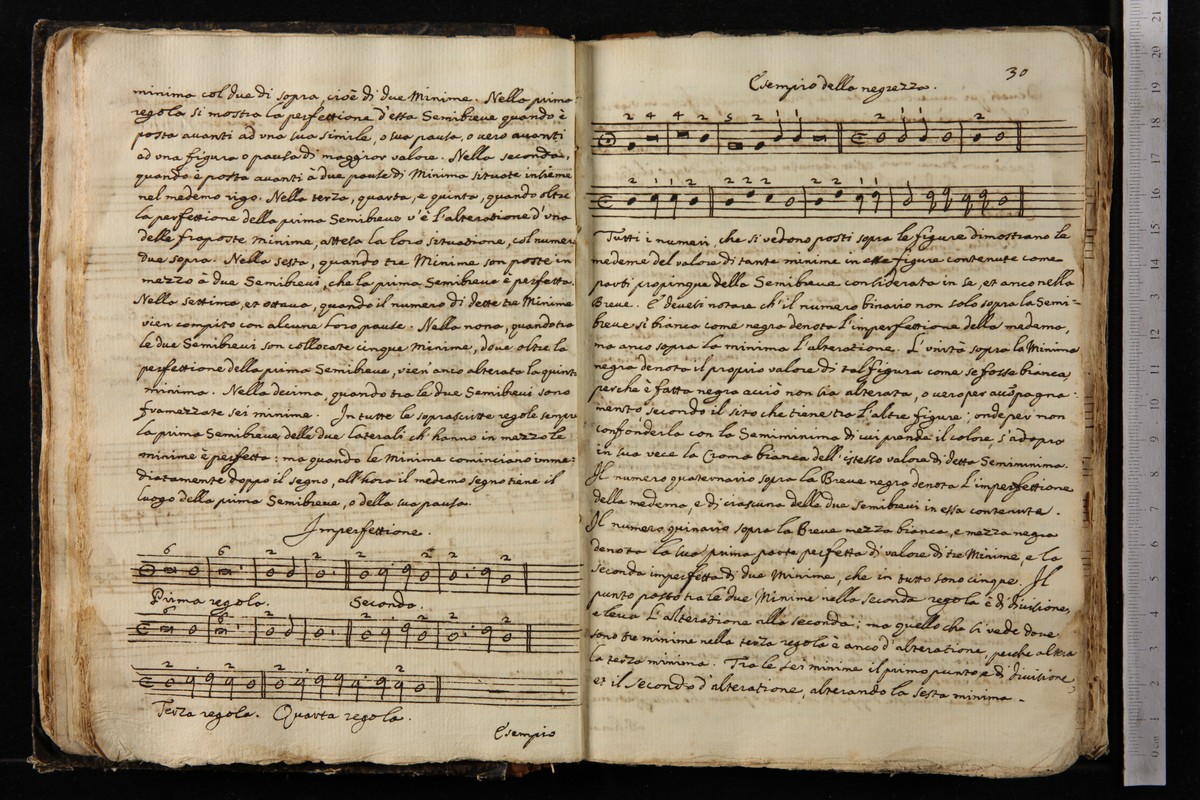 minima col due di sopra, cioè di due Minime. Nella prima
regola si mostra la perfettione d'essa Semibreue quando è
posta auanti ad vna sua simile, o sua pausa, o uero auanti
ad vna figura o pausa di maggior valore. Nella seconda,
quando è posta auanti à due pause di Minima situate insieme
nel medemo rigo. Nella terza, quarta, e quinta, quando oltre
la perfettione della prima Semibreue v'è l'alteratione d'vna
delle fraposte minime, attesa la loro situatione, col numero
due sopra. Nella sesta, quando tre Minime son poste in
mezzo à due Semibreui, che la prima Semibreue è perfetta.
Nella settima, et ottaua, quando il numero di dette tre Minime
vien compito con alcune loro pause. Nella nona, quando tra
le due Semibreui son collocate cinque Minime, doue oltre la
perfettione della prima Semibreue, vien anco alterata la quinta
minima. Nella decima, quando tra le due Semibreui sono
framezzate sei minime. In tutte le soprascritte regole sempre
la prima Semibreue delle due laterali ch'hanno in mezzo le
minime è perfetta: ma quando le Minime cominciano imme:
diatamente doppo il segno, all'hora il medemo segno tiene il
luogo della prima Semibreue, o della sua pausa.
Imperfettione.
6 6 2 2 2 2 2 2
Prima regola. Seconda.
6 6 2 2 2 2 2 2
2 2 2 2
Terza regola. Quarta regola.
Esempio
30
Esempio della negrezza.
2 4 4 2 5 2 1 1 2 1 1 2
2 1 1 2 2 2 2 2 2 1 1
Tutti i numeri, che si vedono posti sopra le figure dimostrano le
medeme del valore di tante minime in esse figure contenute come
parti propinque della Semibreue considerata in se, et anco nella
Breue. E deuesi notare ch'il numero binario non solo sopra la Semi=
breue sì bianca come negra denota l'imperfettione della medema,
ma anco sopra la minima l'alteratione. L'vnità sopra la Minima
negra denota il proprio valore di tal figura come se fosse bianca,
perche è fatta negra acciò non sia alterata, o uero per accompagna:
mento secondo il sito che tiene tra l'altre figure: onde per non
confonderla con la Semiminima di cui prende il colore, s'adopra
in sua vece la Croma bianca dell'istesso valore di detta Semiminima.
Il numero quaternario sopra la Breue negra denota l'imperfettione
della medema, e di ciascuna delle due Semibreui in essa contenute.
Il numero quinario sopra la Breue mezza bianca, e mezza negra
denota la sua prima parte perfetta di valore di tre Minime, e la
seconda imperfetta di due Minime, che in tutto sono cinque. Il
punto posto tra le due Minime nella seconda regola è di diuisione,
e leua l'alteratione alla seconda; ma quello che si vede doue
sono tre minime nella terza regola è anco d'alteratione, perche altera
la terza minima. Tra le sei minime il primo punto è di diuisione,
et il secondo d'alteratione, alterando la sesta minima.